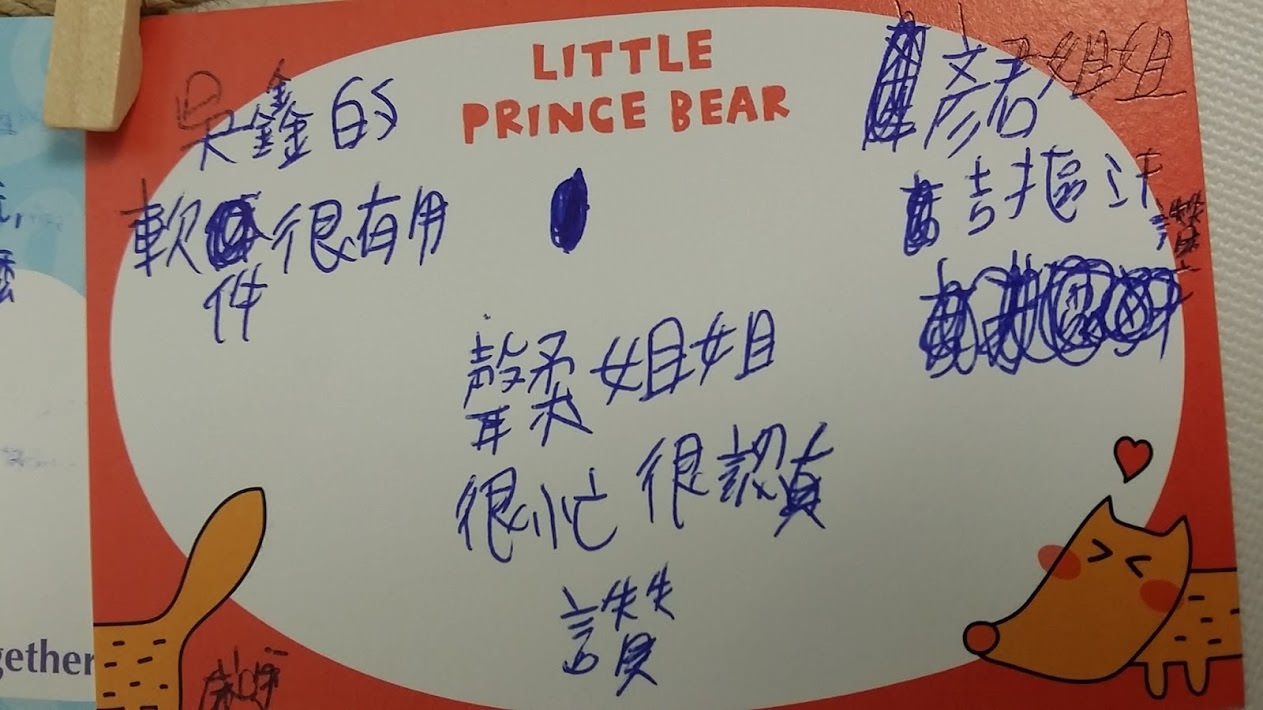 LITTLE
PRINCE BEAR
吳鑫的
軟件很有用
彥君姐姐
吉摳汁
讚
聲柔姐姐
很忙 很認真
讚
gether